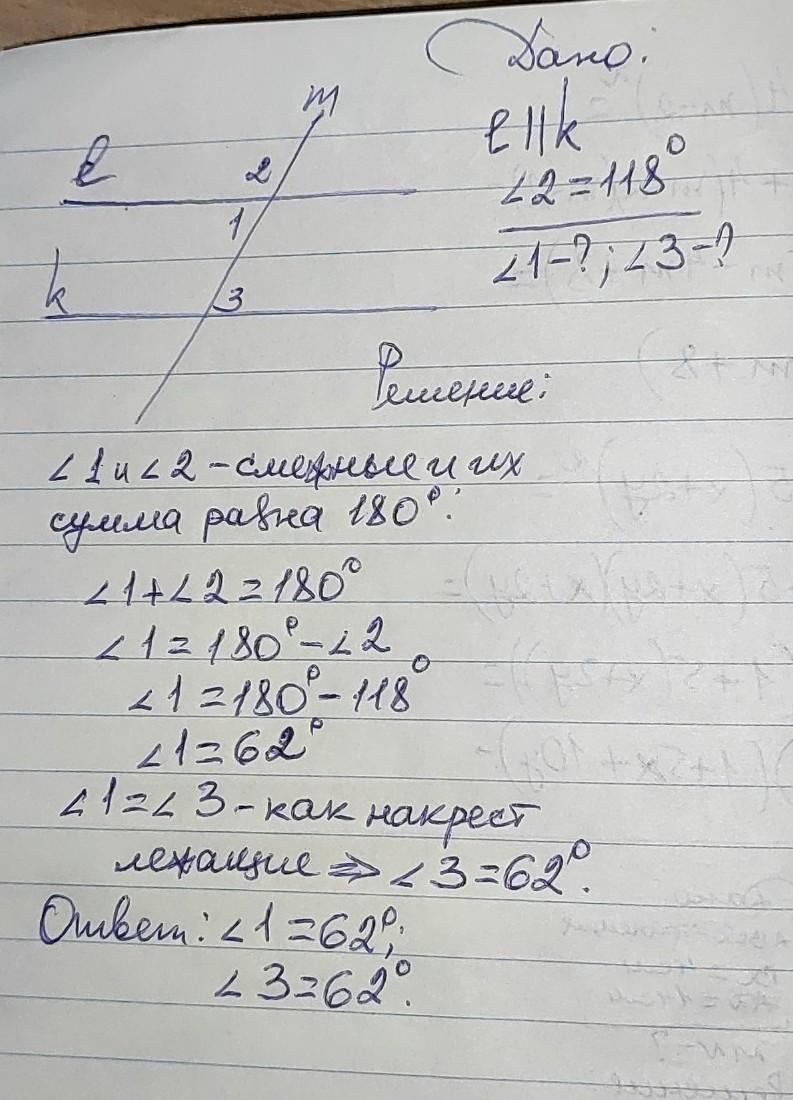 Дано:
m
l
2
l || k
∠2=118°
1
∠1-?; ∠3-?
k
3
Решение:
∠1 и ∠2 - смежные и их
сумма равна 180°:
∠1+∠2=180°
∠1=180°-∠2
∠1=180°-118°
∠1=62°
∠1=∠3-как накрест
лежащие ⇒ ∠3=62°.
Ответ: ∠1=62°;
∠3=62°.